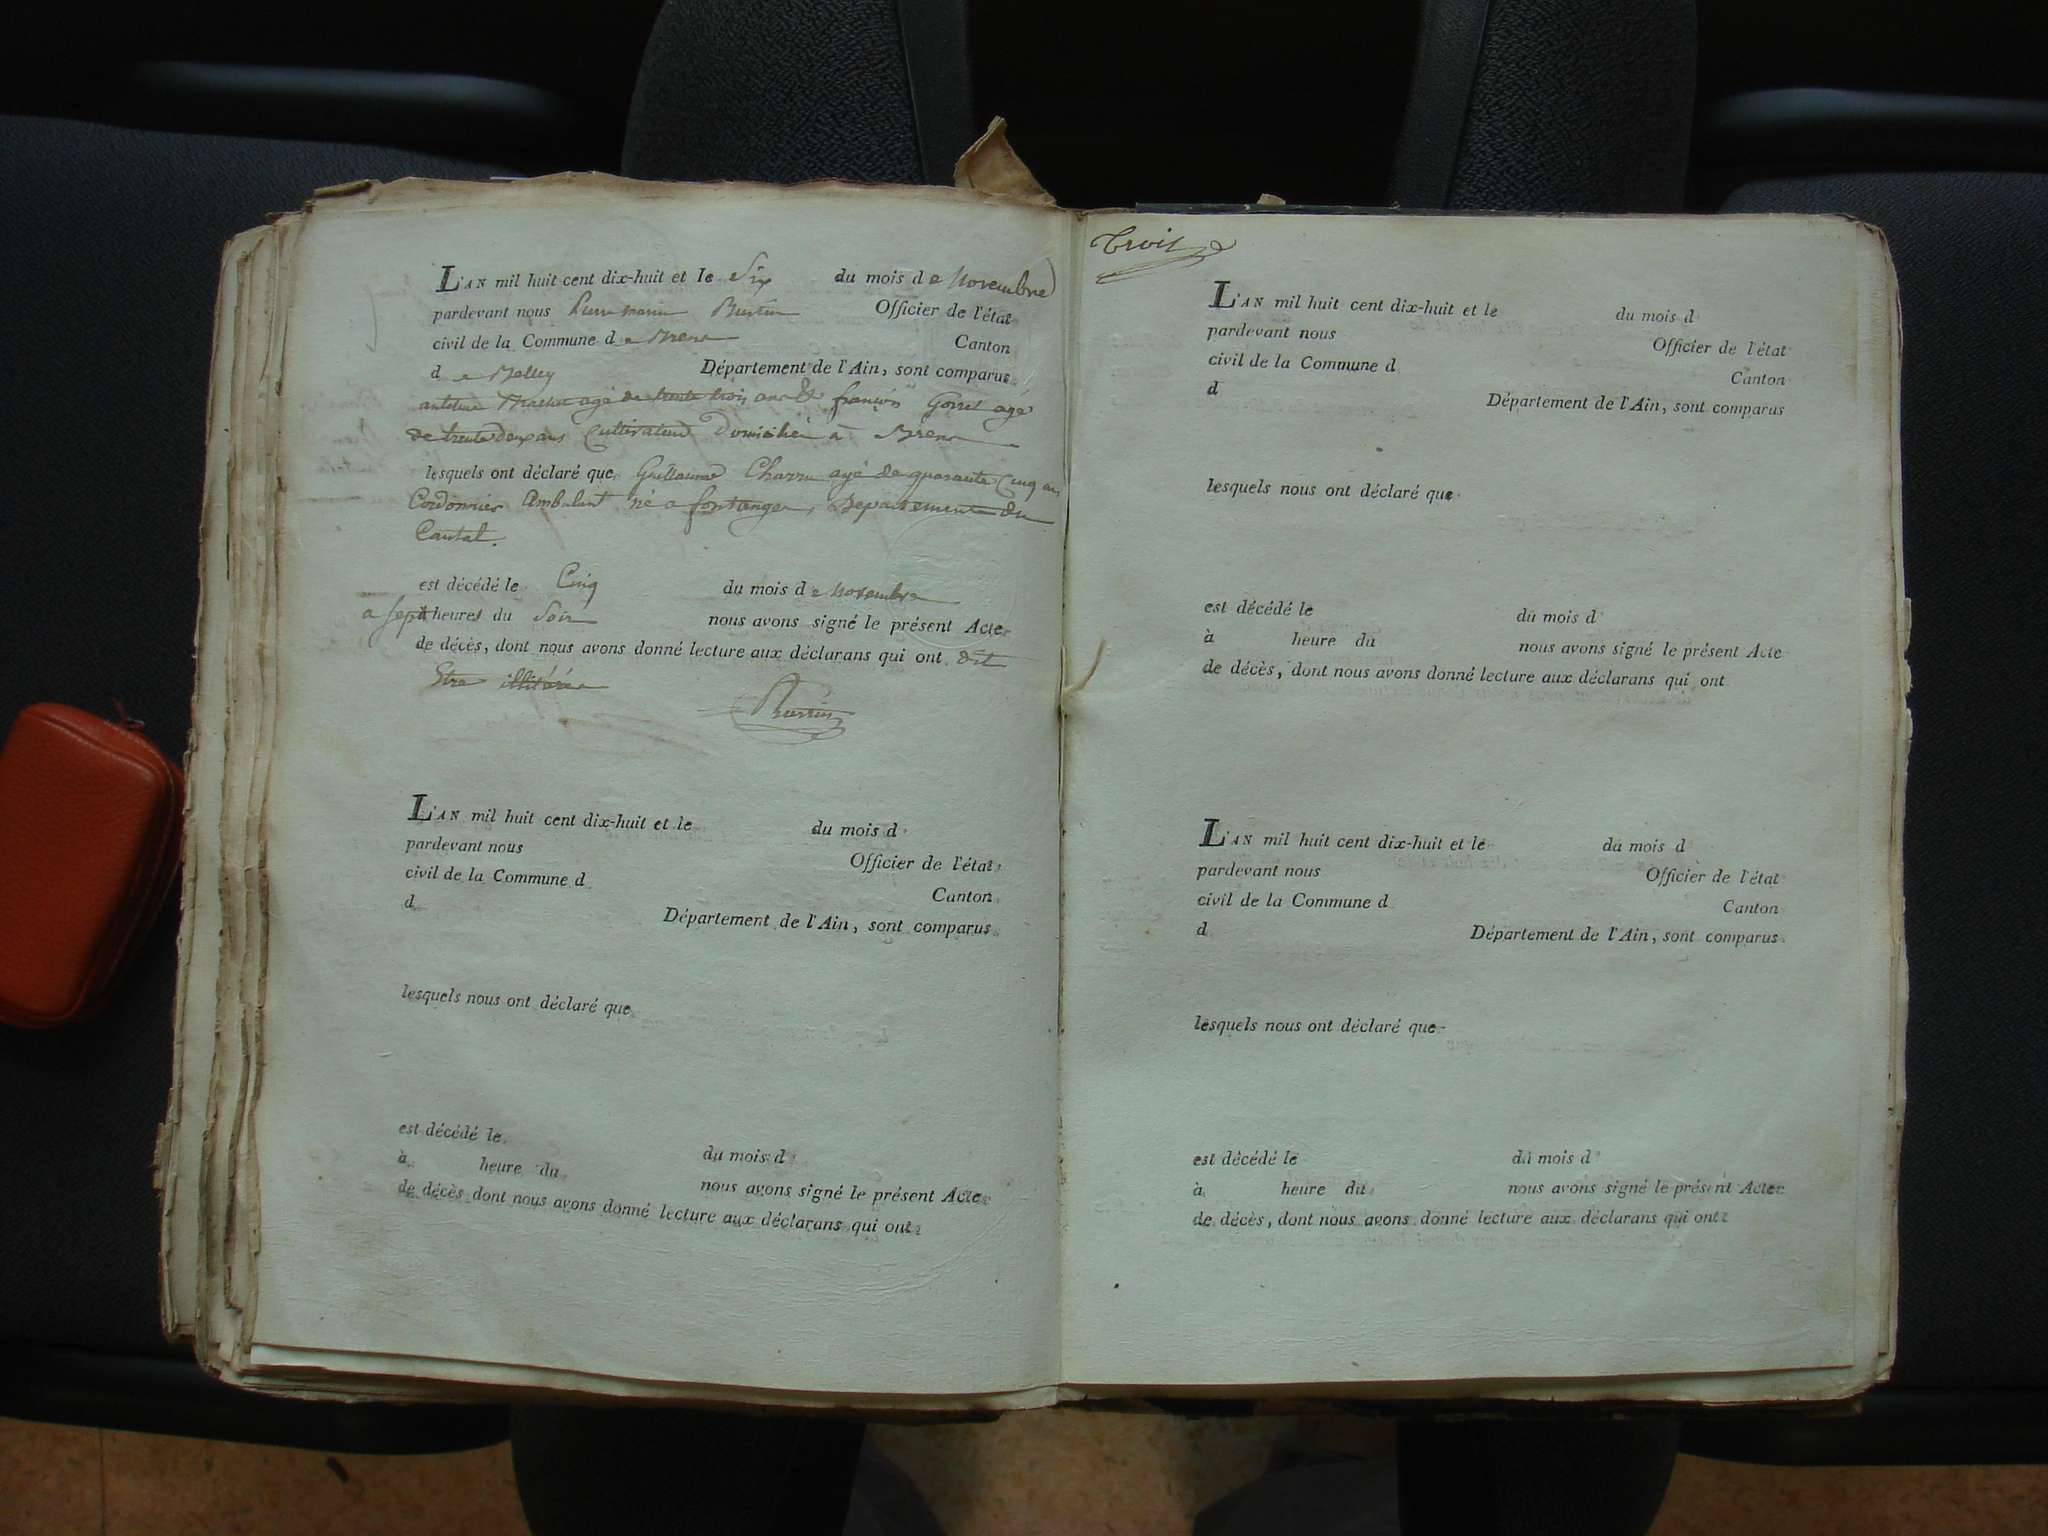 L'AN mil huit cent dix-huit et le Six du mois de Novembre
pardevant nous Pierre marie Officier de l'état
civil de la Commune de Brens Canton
de Belley Département de l'Ain, sont comparus
antelme agé de trente trois ans & françois Gorrel agé
de trente deux ans Cultivateurs Domiciliés à Brens
lesquels ont déclaré que Guillaume agé de quarante Cinq ans
Cordonnier Ambulant né a fontanges, Departement du
Cantal.
est décédé le Cinq du mois de Novembre
a sept heures du Soir nous avons signé le présent Acte
de décès, dont nous avons donné lecture aux déclarans qui ont dit
Etre illiterés
L'AN mil huit cent dix-huit et le du mois d
pardevant nous Officier de l'état
civil de la Commune d Canton
d Département de l'Ain, sont comparus
lesquels nous ont déclaré que
est décédé le du mois d
à heure du nous avons signé le présent Acte
de décès dont nous avons donné lecture aux déclarans qui ont
Trois
L'AN mil huit cent dix-huit et le du mois d
pardevant nous Officier de l'état
civil de la Commune d Canton
d Département de l'Ain, sont comparus
lesquels nous ont déclaré que
est décédé le du mois d
à heure du nous avons signé le présent Acte
de décès, dont nous avons donné lecture aux déclarans qui ont
L'AN mil huit cent dix-huit et le du mois d
pardevant nous Officier de l'état
civil de la Commune d Canton
d Département de l'Ain, sont comparus
lesquels nous ont déclaré que
est décédé le du mois d
à heure du nous avons signé le présent Acte
de décès, dont nous avons donné lecture aux déclarans qui ont